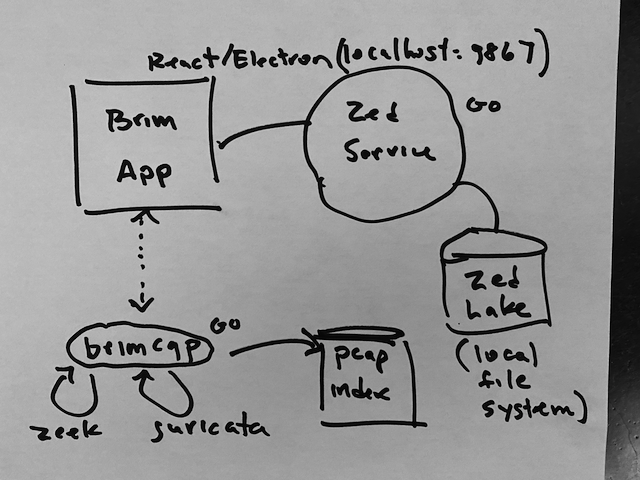 React/Electron (localhost:9867)
Brim
App
Zed
Service
GO
Zed
Lake
(local
file
system)
brimcap
GO
pcap
index
zeek
suricata